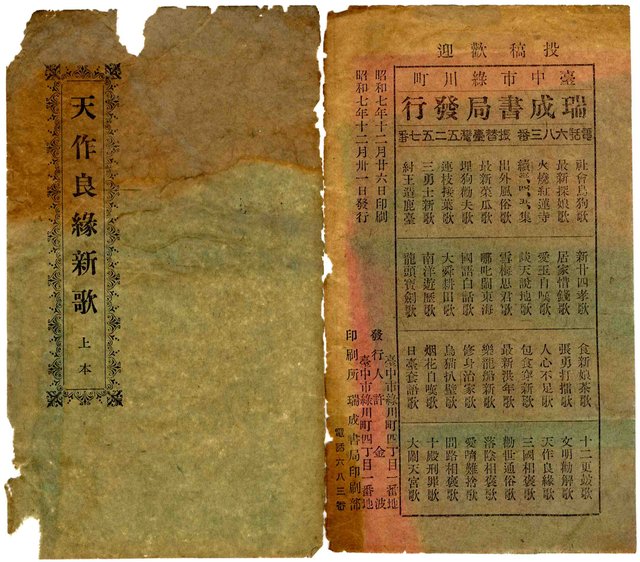 投稿歡迎
臺中市綠川町
瑞成書局發行
電話六八三番 振替臺灣五二五七番
社會烏狗歌
最新探娘歌
火燒紅蓮寺
續 集
出外風俗歌
最新菜瓜歌
埋狗勸夫歌
連枝接葉歌
三勇士新歌
紂王造鹿臺
新廿四孝歌
居家惜錢歌
愛玉自嘆歌
談天說地歌
雪梅思君歌
哪叱鬧東海
國語白話歌
大舜耕田歌
南洋遊歷歌
龍頭寶劍歌
食新娘茶歌
張勇打擂歌
人心不足歌
包食穿新歌
最新 年歌
龍船新歌
修身治家歌
烏猫扒壁歌
烟花自嘆歌
日臺套語歌
十二更鼓歌
文明勸解歌
天作良緣歌
三國相褒歌
勸世通俗歌
落陰相褒歌
愛 難捨歌
問路相褒歌
十殿刑罪歌
大鬧天宮歌
昭和七年十二月廿六日印刷
昭和七年十二月卅一日發行
臺中市綠川町四丁目一番地
發行 許金波
臺中市綠川町四丁目一番地
印刷所 瑞成書局印刷部
電話六八三番
天作良緣新歌 上本